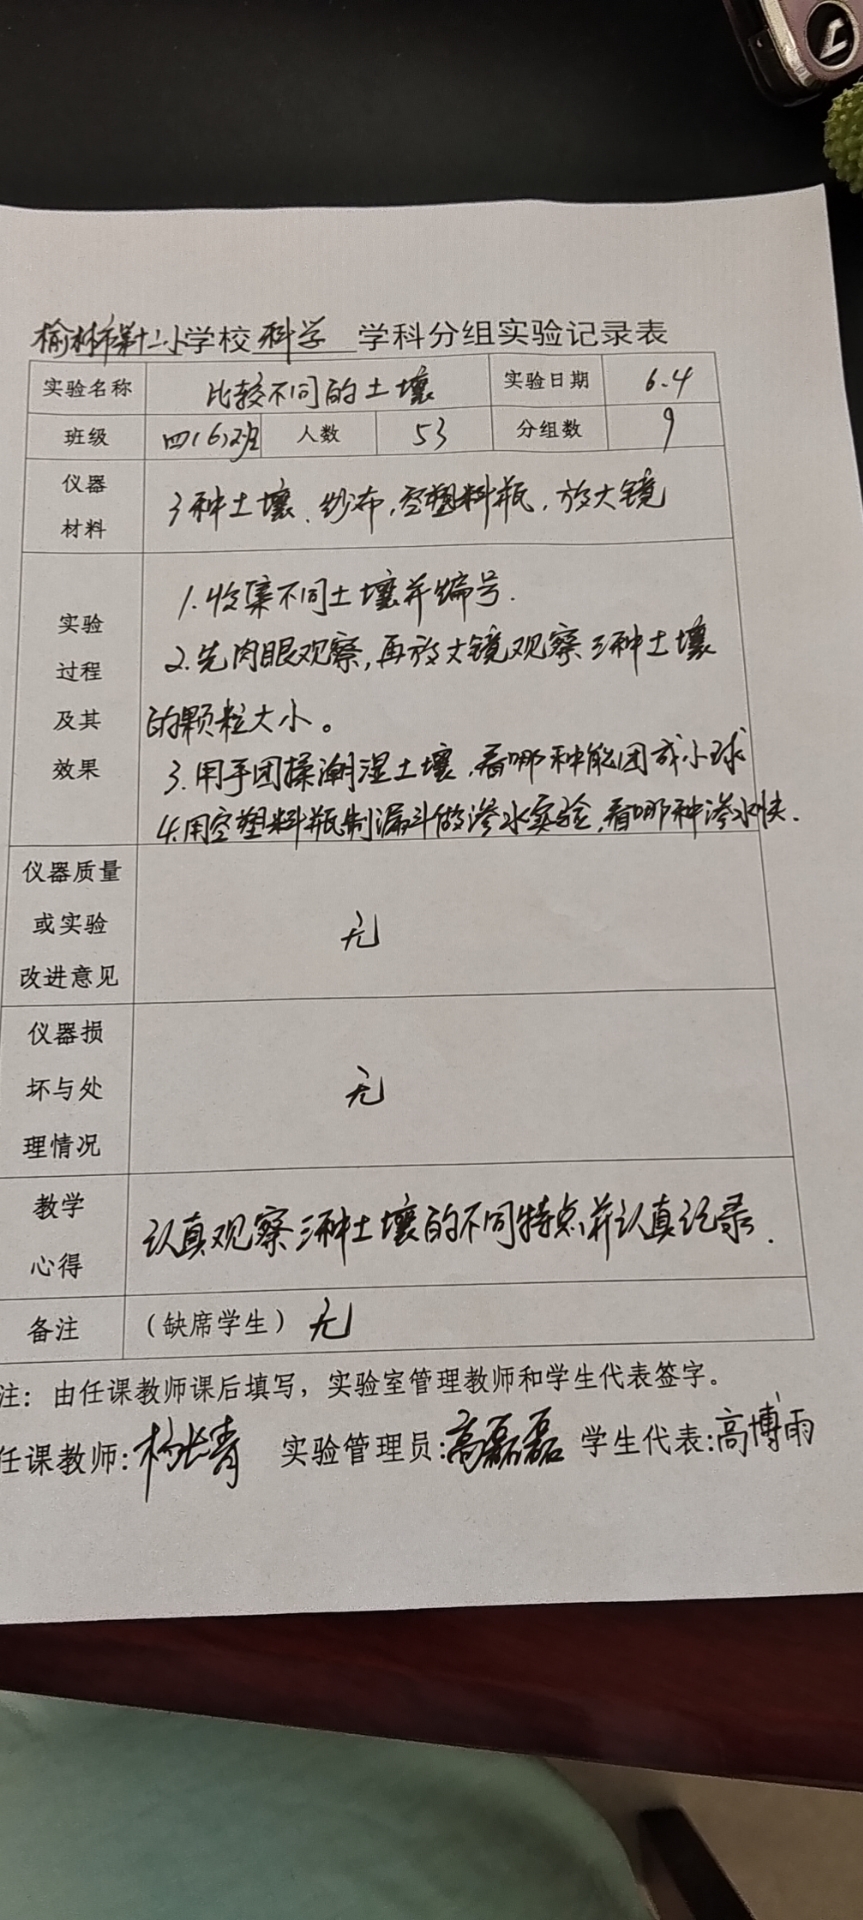 榆林市第十二小学校 科学 学科分组实验记录表
实验名称 比较不同的土壤 实验日期 6.4
班级 四(6)班 人数 53 分组数 9
仪器材料 3种土壤、纱布,空塑料瓶,放大镜
实验过程及其效果
1.收集不同土壤并编号.
2.先肉眼观察,再放大镜观察三种土壤
的颗粒大小。
3.用手团揉潮湿土壤,看哪种能团成小球
4.用空塑料瓶制漏斗做渗水实验,看哪种渗水快.
仪器质量或实验改进意见 无
仪器损坏与处理情况 无
教学心得 认真观察三种土壤的不同特点,并认真记录.
备注 (缺席学生) 无
注:由任课教师课后填写,实验室管理教师和学生代表签字。
任课教师:杨长青 实验管理员:高磊磊 学生代表:高博雨